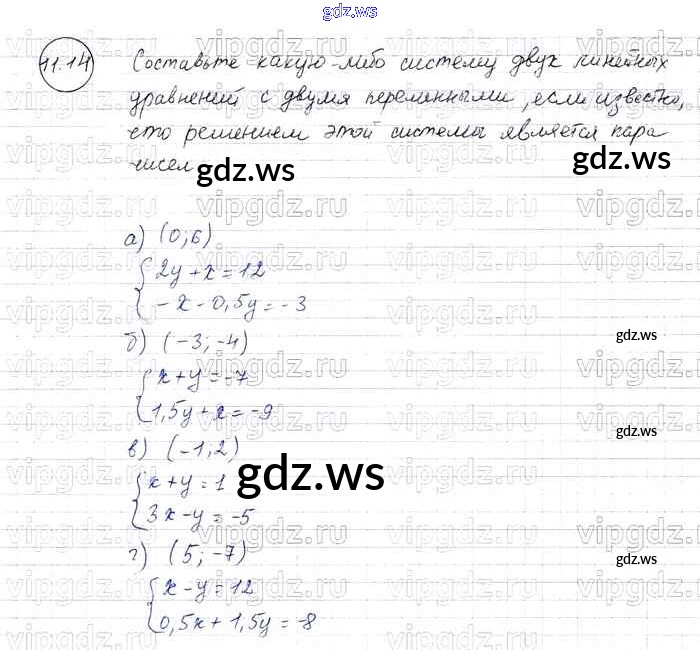 gdz.ws
11.14 Составьте какую-либо систему двух линейных
уравнений с двумя переменными, если известно,
что решением этой системы является пара
чисел
gdz.ws
gdz.ws
а) (0; 6)
2y + x = 12
- x - 0,5y = - 3
б) (-3; -4)
gdz.ws
x + y = -7
1,5y + x = -9
в) (-1; 2)
gdz.ws
gdz.ws
x + y = 1
3x - y = -5
г) (5; -7)
gdz.ws
x - y = 12
0,5x + 1,5y = -8
vipgdz.ru